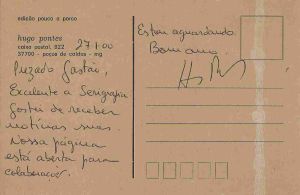 edição pouco a pouco
hugo pontes
caixa postal, 922
37700 - poços de caldas - mg
27.1.00
Prezado Gastão,
Excelente a Serigrafia
Gostei de receber
notícias suas.
Nossa página
está aberta para
colaborações.
Estou aguardando.
Bom ano.